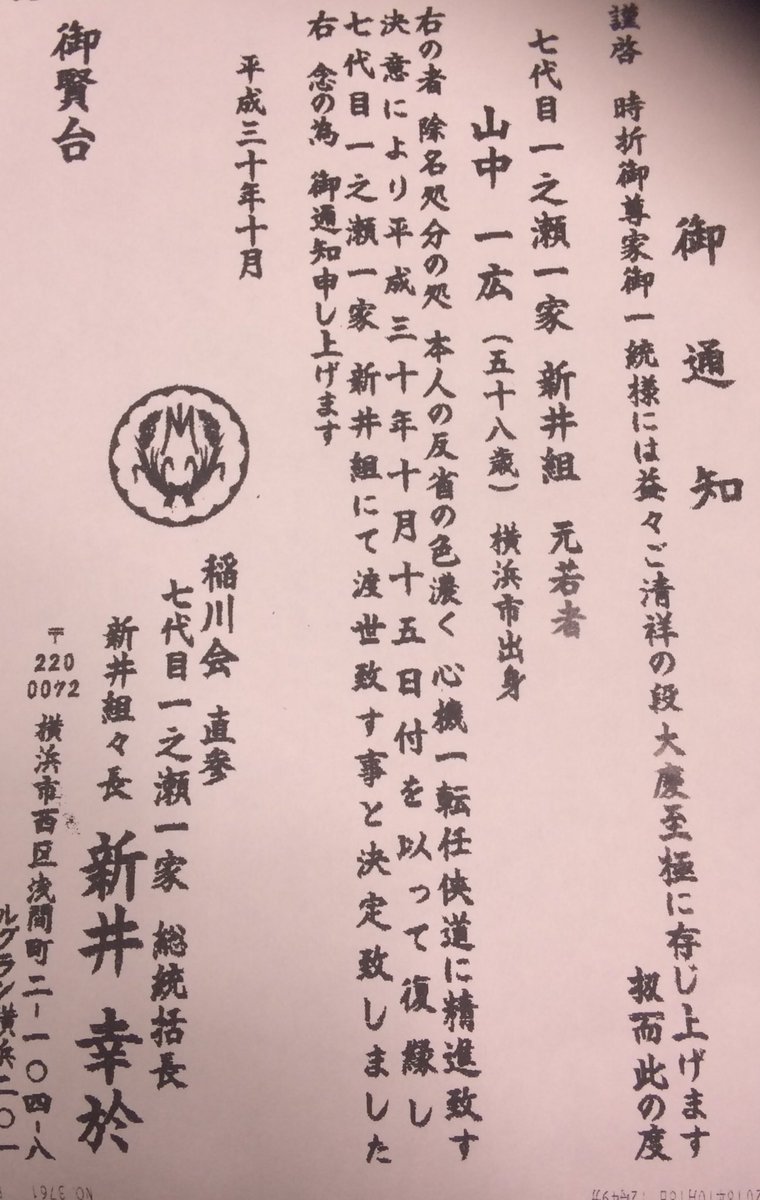 御通知
謹啓 時折御尊家御一統様には益々ご清祥の段大慶至極に存じ上げます
扨而此の度
七代目一之瀬一家 新井組 元若者
山中 一広 (五十八歳) 横浜市出身
右の者 除名処分の処 本人の反省の色濃く 心機一転任侠道に精進致す
決意により平成三十年十月十五日付を以って復縁し
七代目一之瀬一家 新井組にて渡世致す事と決定致しました
右 念の為 御通知申し上げます
平成三十年十月
稲川会 直参
七代目一之瀬一家 総統括長
新井組々長 新井 幸於
〒220 0072 横浜市西区浅間町二-一〇四-八
ルグラン横浜二〇一
御賢台
NO. 3761